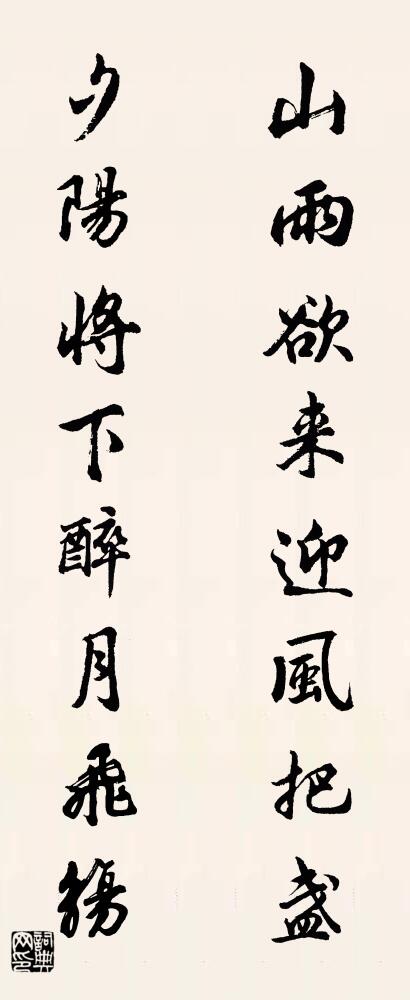 山雨欲来迎風把盏
夕陽將下醉月飛觴
詞典网印